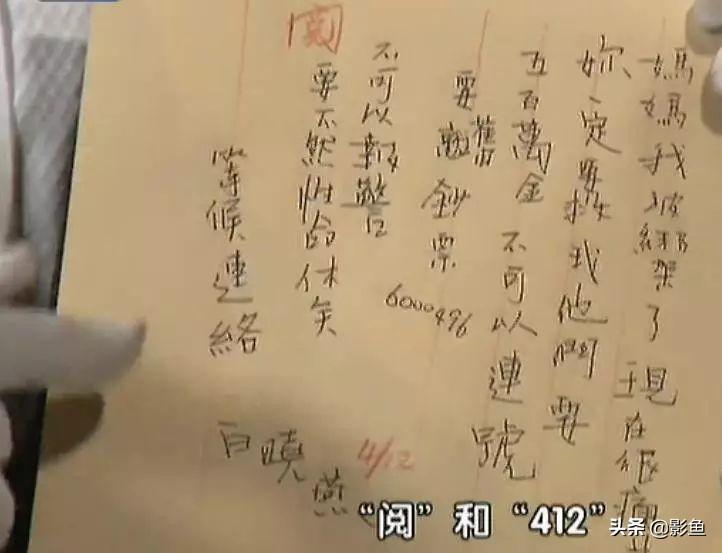 媽媽我被綁架了 現在很痛
妳一定要救我他們要
五百萬金 不可以連號
要舊鈔票
6000496
不可以報警
要不然性命休矣
閱
等候連絡
白曉燕
4/12
“阅”和“412”
头条 @影鱼